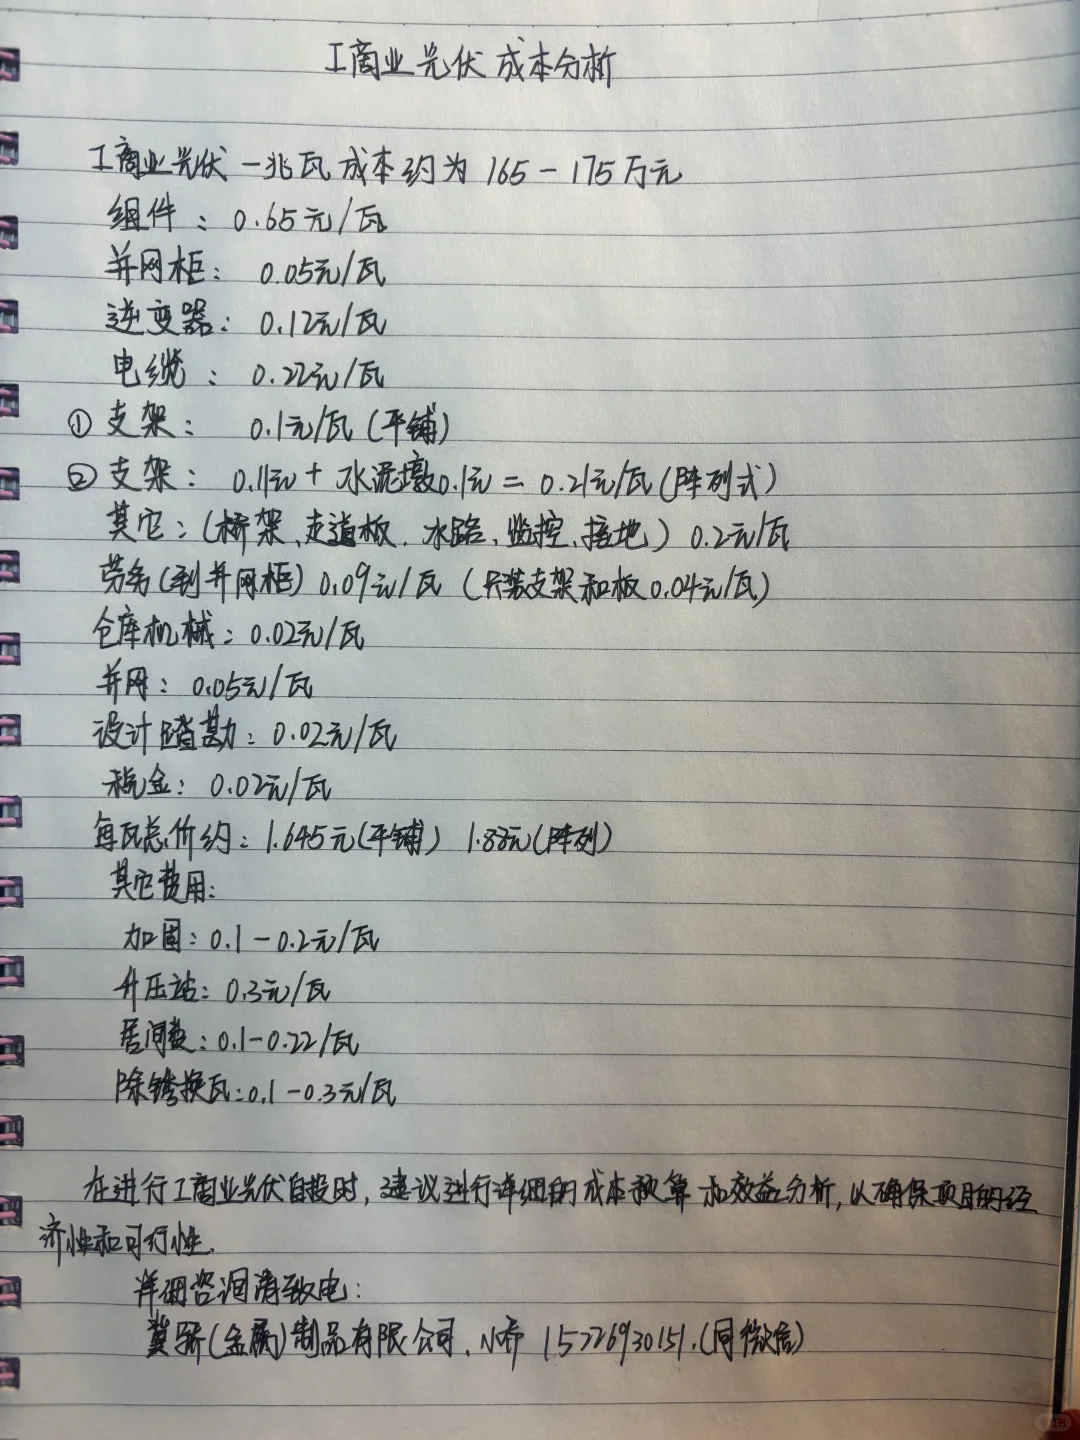 工商业光伏成本分析
工商业光伏一兆瓦成本约为165-175万元
组件：0.65元/瓦
并网柜：0.05元/瓦
逆变器：0.12元/瓦
电缆：0.22元/瓦
①支架：0.1元/瓦(平铺)
②支架：0.11元+水泥墩0.1元=0.21元/瓦(阵列式)
其它：(桥架、走道板、水路、监控、接地)0.2元/瓦
劳务(到并网柜)0.09元/瓦(只装支架和板0.04元/瓦)
仓库机械：0.02元/瓦
并网：0.05元/瓦
设计踏勘：0.02元/瓦
税金：0.02元/瓦
每瓦总价约：1.645元(平铺) 1.88元(阵列)
其它费用：
加固：0.1-0.2元/瓦
升压站：0.3元/瓦
居间费：0.1-0.22/瓦
除锈换瓦：0.1-0.3元/瓦
在进行工商业光伏自投时，建议进行详细的成本预算和效益分析，以确保项目的经
济性和可行性.
详细咨询请致电：
冀骄(金属)制品有限公司、小乔 15226930151.(同微信)